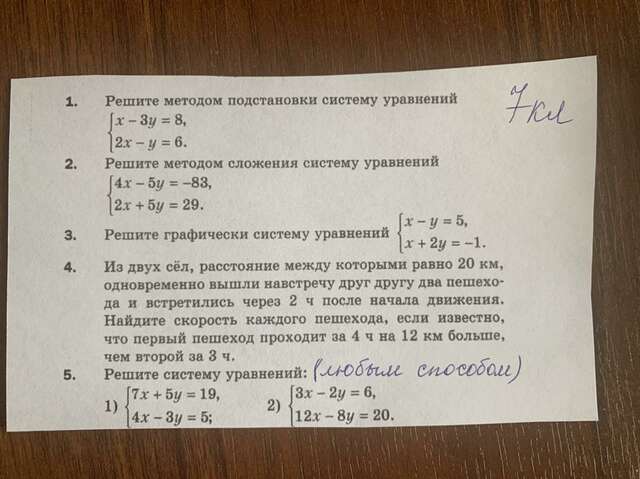 7 кл
1. Решите методом подстановки систему уравнений
x – 3y = 8,
2x – y = 6.
2. Решите методом сложения систему уравнений
4x – 5y = –83,
2x + 5y = 29.
3. Решите графически систему уравнений { x – y = 5,
x + 2y = –1.
4. Из двух сёл, расстояние между которыми равно 20 км,
одновременно вышли навстречу друг другу два пешехо-
да и встретились через 2 ч после начала движения.
Найдите скорость каждого пешехода, если известно,
что первый пешеход проходит за 4 ч на 12 км больше,
чем второй за 3 ч.
5. Решите систему уравнений: (любым способом)
1) { 7x + 5y = 19, 2) { 3x – 2y = 6,
4x – 3y = 5; 12x – 8y = 20.